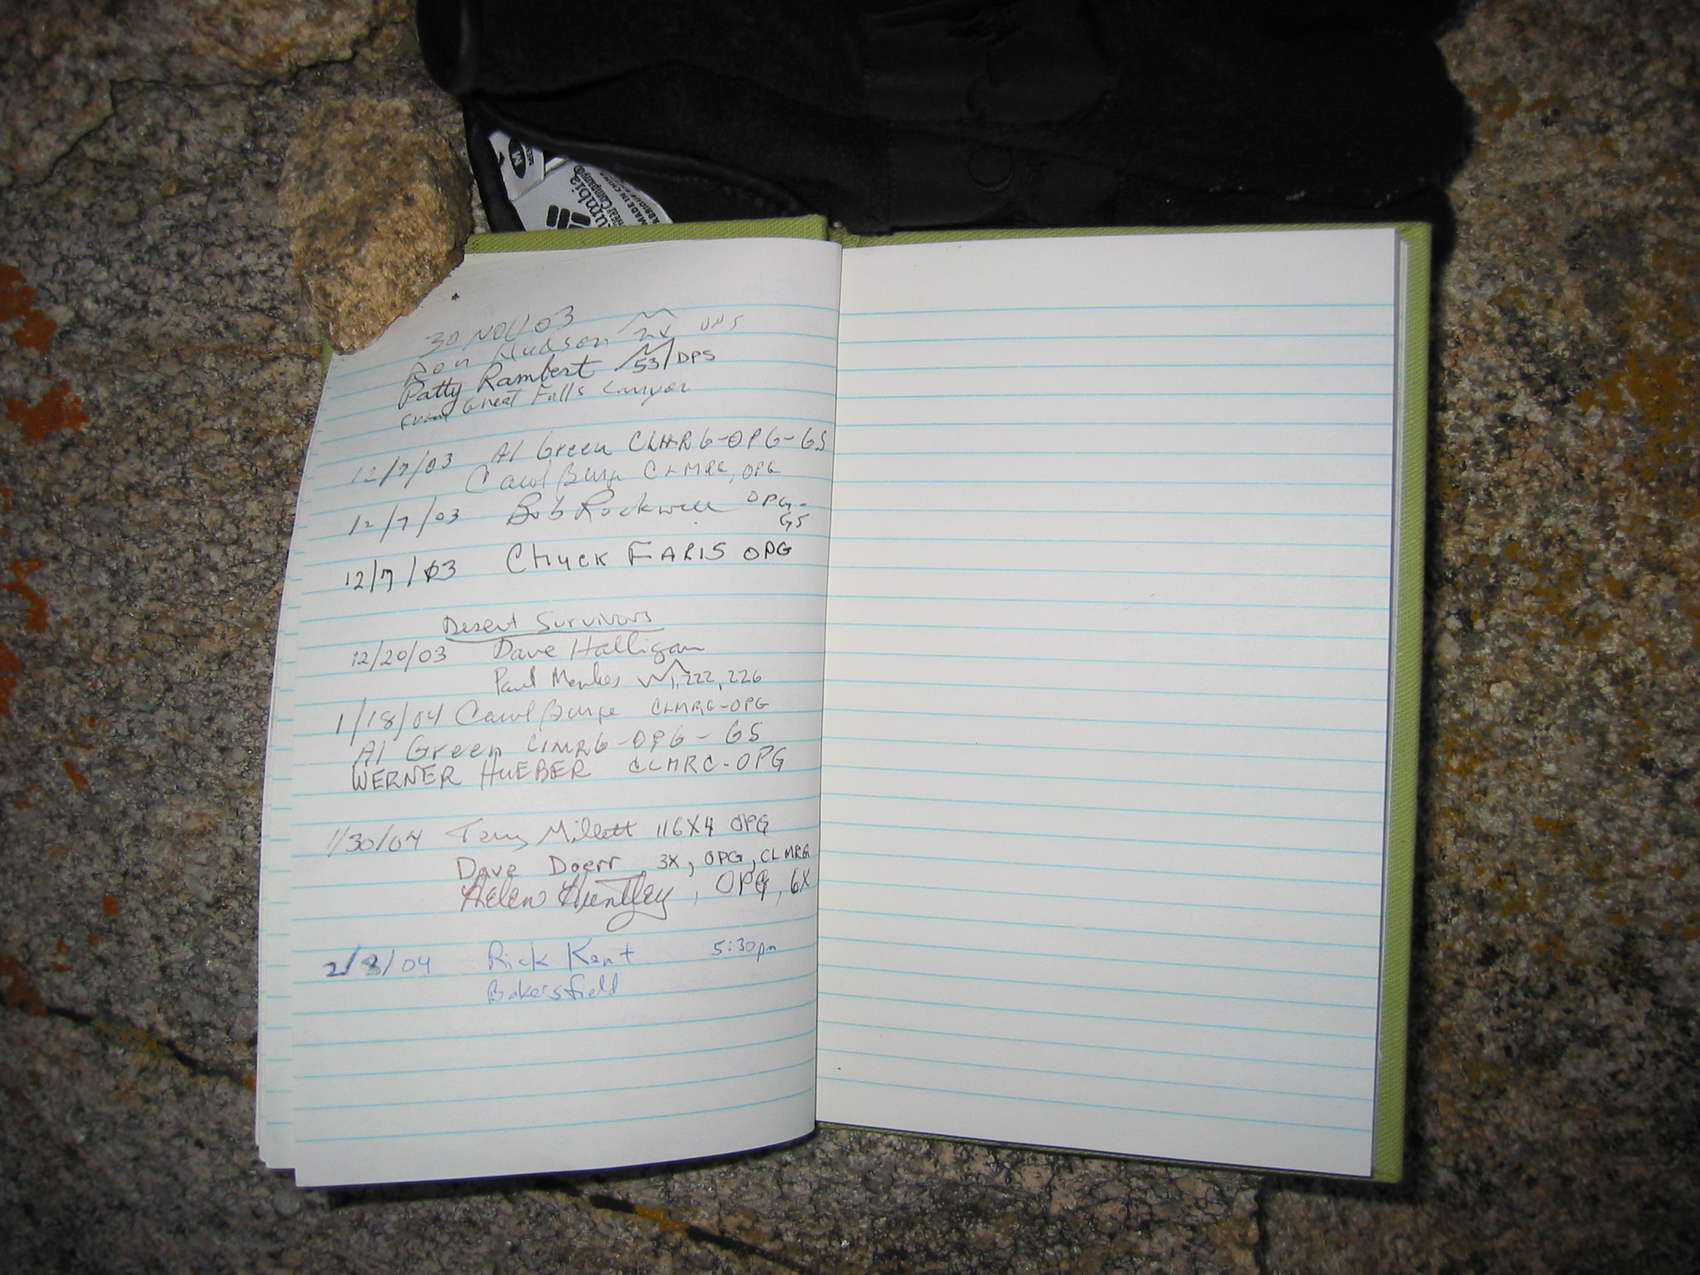 M
umbia
MADE IN CHINA
30 NOV 03
Ron Hudson 2X DPS
Patty Rambert 53/DPS
from Great Falls Canyon
12/7/03 Al Green CLMRG-OPG-GS
Carol Burge CLMRG, OPG
12/7/03 Bob Rockwell OPG-
GS
12/7/03 Chuck FARIS OPG
Desert Survivors
12/20/03 Dave Halligan
Paul Menkes 222, 226
1/18/04 Carol Burge CLMRG-OPG
Al Green CLMRG-OPG-GS
WERNER HUEBER CLMRG-OPG
1/30/04 Terry Millett 116X4 OPG
Dave Doerr 3X, OPG, CLMRG
Helen Huntley, OPG, 6X
2/8/04 Rick Kent 5:30pm
Bakersfield